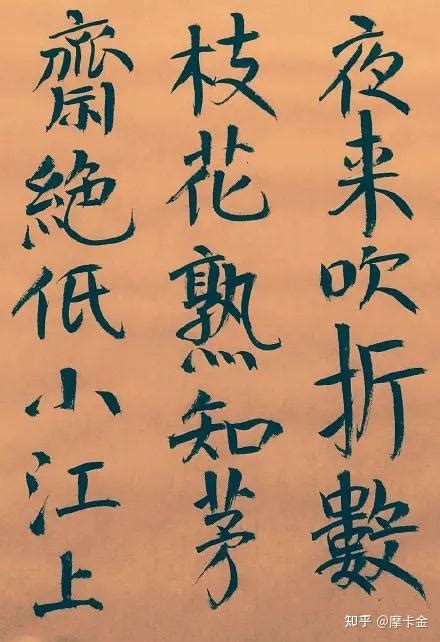 夜来吹折數
枝花熟知茅
齋絶低小江上
知乎 @摩卡金